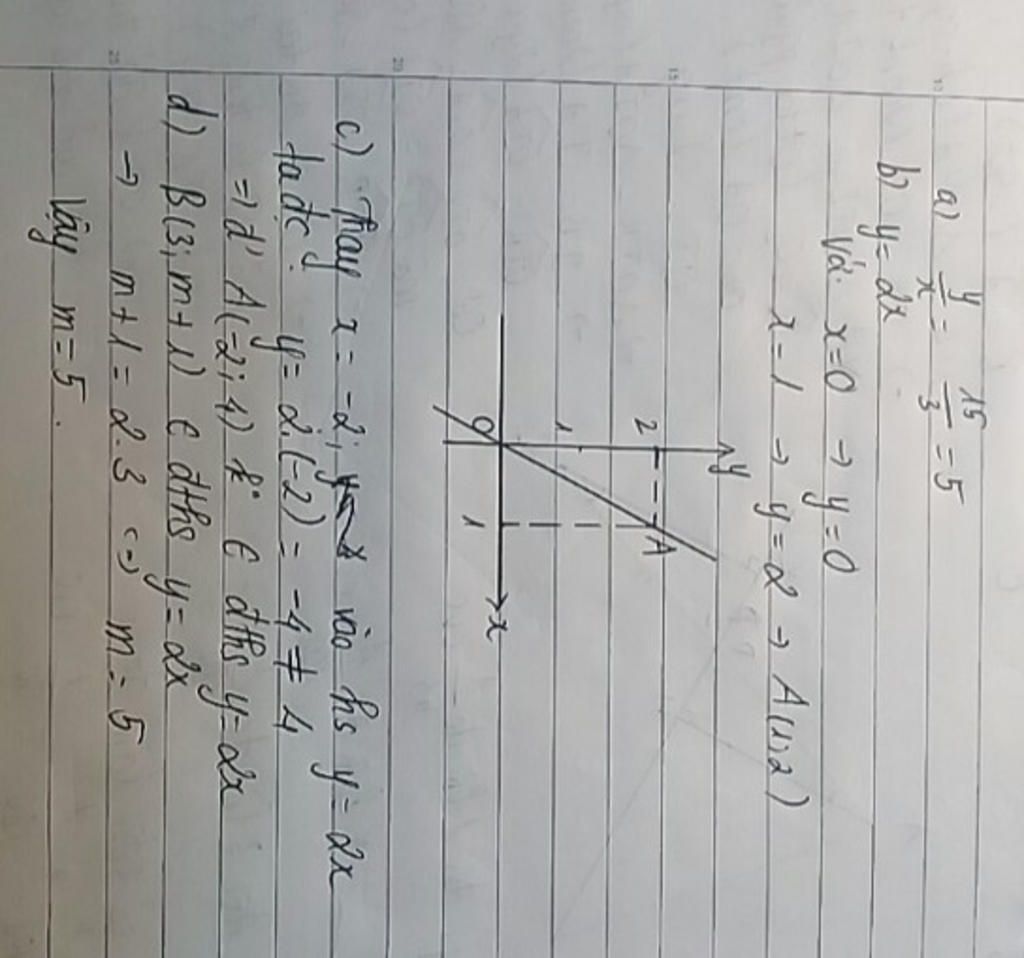 a) y/x = 15/3 = 5
b) y = 2x
Vá. x = 0 → y = 0
x = 1 → y = 2 → A(1;2)
y
2
A
1
O
1
x
c) thay x = -2; vào hs y = 2x
ta đc: y = 2.(-2) = -4 ≠ 4
=> d' A(-2; 4) k° ∈ đths y = 2x
d) B(3; m+1) ∈ đths y = 2x
→ m + 1 = 2.3 <=> m = 5
Vậy m = 5.